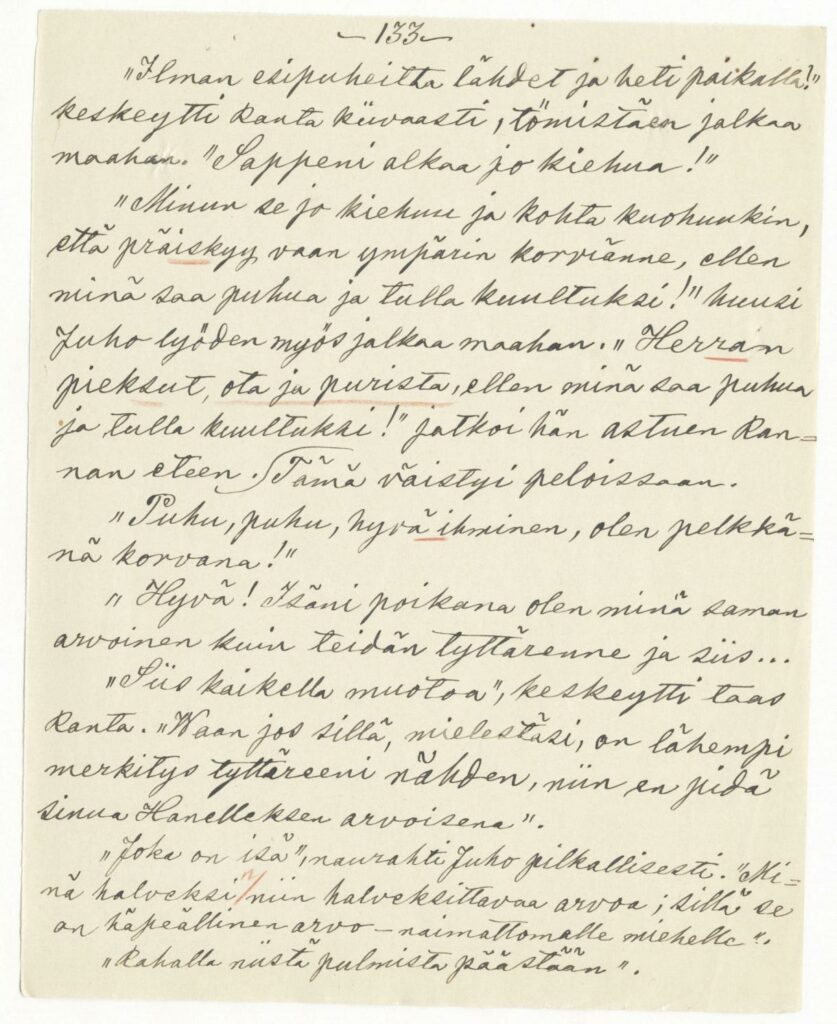 — 133 —
"Ilman esipuheitta lähdet ja heti paikalla!"
keskeytti Ranta kiivaasti, tömistäen jalkaa
maahan. "Sappeni alkaa jo kiehua!"
"Minun se jo kiehuu ja kohta kuohuukin,
että präiskyy vaan ympärin korvianne, ellen
minä saa puhua ja tulla kuultuksi!" huusi
Juho lyöden myös jalkaa maahan. "Herran
pieksut, ota ja purista, ellen minä saa puhua
ja tulla kuultuksi!" jatkoi hän astuen Ran=
nan eteen. Tämä väistyi peloissaan.
"Puhu, puhu, hyvä ihminen, olen pelkkä=
nä korvana!"
"Hyvä! Isäni poikana olen minä saman
arvoinen kuin teidän tyttärenne ja siis...
"Siis kaikella muotoa", keskeytti taas
Ranta. "Waan jos sillä, mielestäsi, on lähempi
merkitys tyttäreeni nähden, niin en pidä
sinua Hanelleksen arvoisena".
"Joka on isä", naurahti Juho pilkallisesti. "Mi=
nä halveksin niin halveksittavaa arvoa; sillä se
on häpeällinen arvo – naimattomalle miehelle".
"Rahalla niistä pulmista päästään".